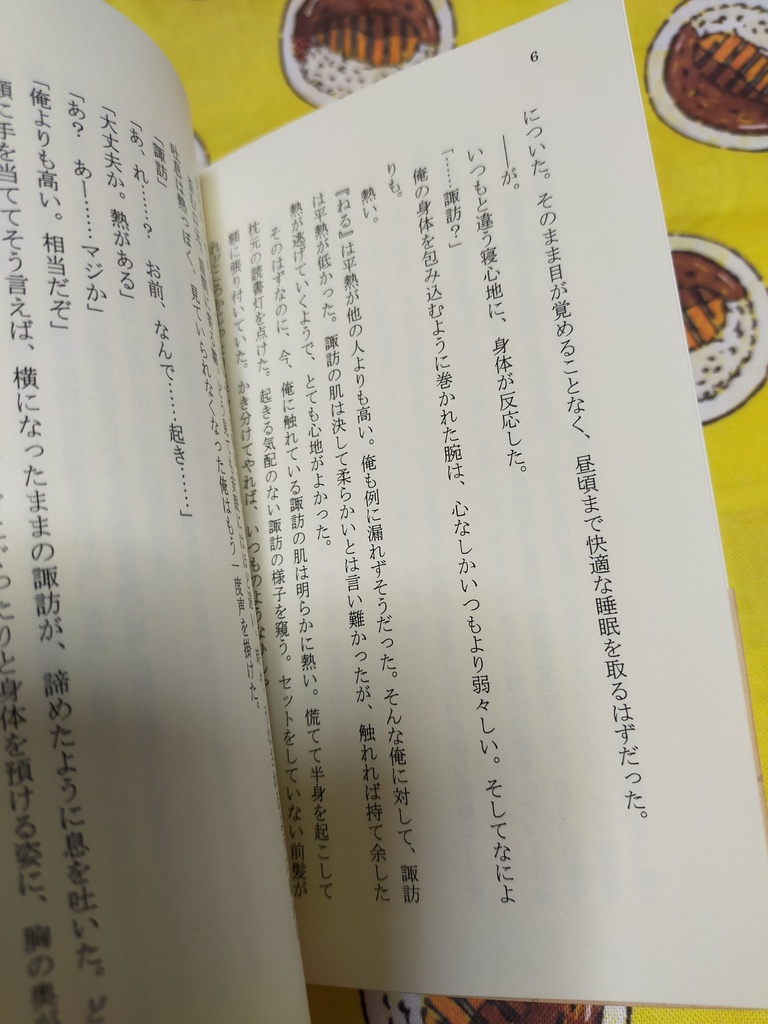 6
についた。そのまま目が覚めることなく、昼頃まで快適な睡眠を取るはずだった。
――が。
いつもと違う寝心地に、身体が反応した。
「……諏訪？」
俺の身体を包み込むように巻かれた腕は、心なしかいつもより弱々しい。そしてなによ
りも。
熱い。
『ねる』は平熱が他の人よりも高い。俺も例に漏れずそうだった。そんな俺に対して、諏訪
は平熱が低かった。諏訪の肌は決して柔らかいとは言い難かったが、触れれば持て余した
熱が逃げていくようで、とても心地がよかった。
そのはずなのに、今、俺に触れている諏訪の肌は明らかに熱い。慌てて半身を起こして
枕元の読書灯を点けた。起きる気配のない諏訪の様子を窺う。セットをしていない前髪が
額に張り付いていた。かき分けてやれば、いつものような
吐息は熱っぽく、見ていられなくなった俺はもう一度声を掛けた。
「諏訪」
「あ、れ……？　お前、なんで……起き……」
「大丈夫か。熱がある」
「あ？　あー……マジか」
「俺よりも高い。相当だぞ」
額に手を当ててそう言えば、横になったままの諏訪が、諦めたように息を吐いた。ど
ったりと身体を預ける姿に、胸の奥が